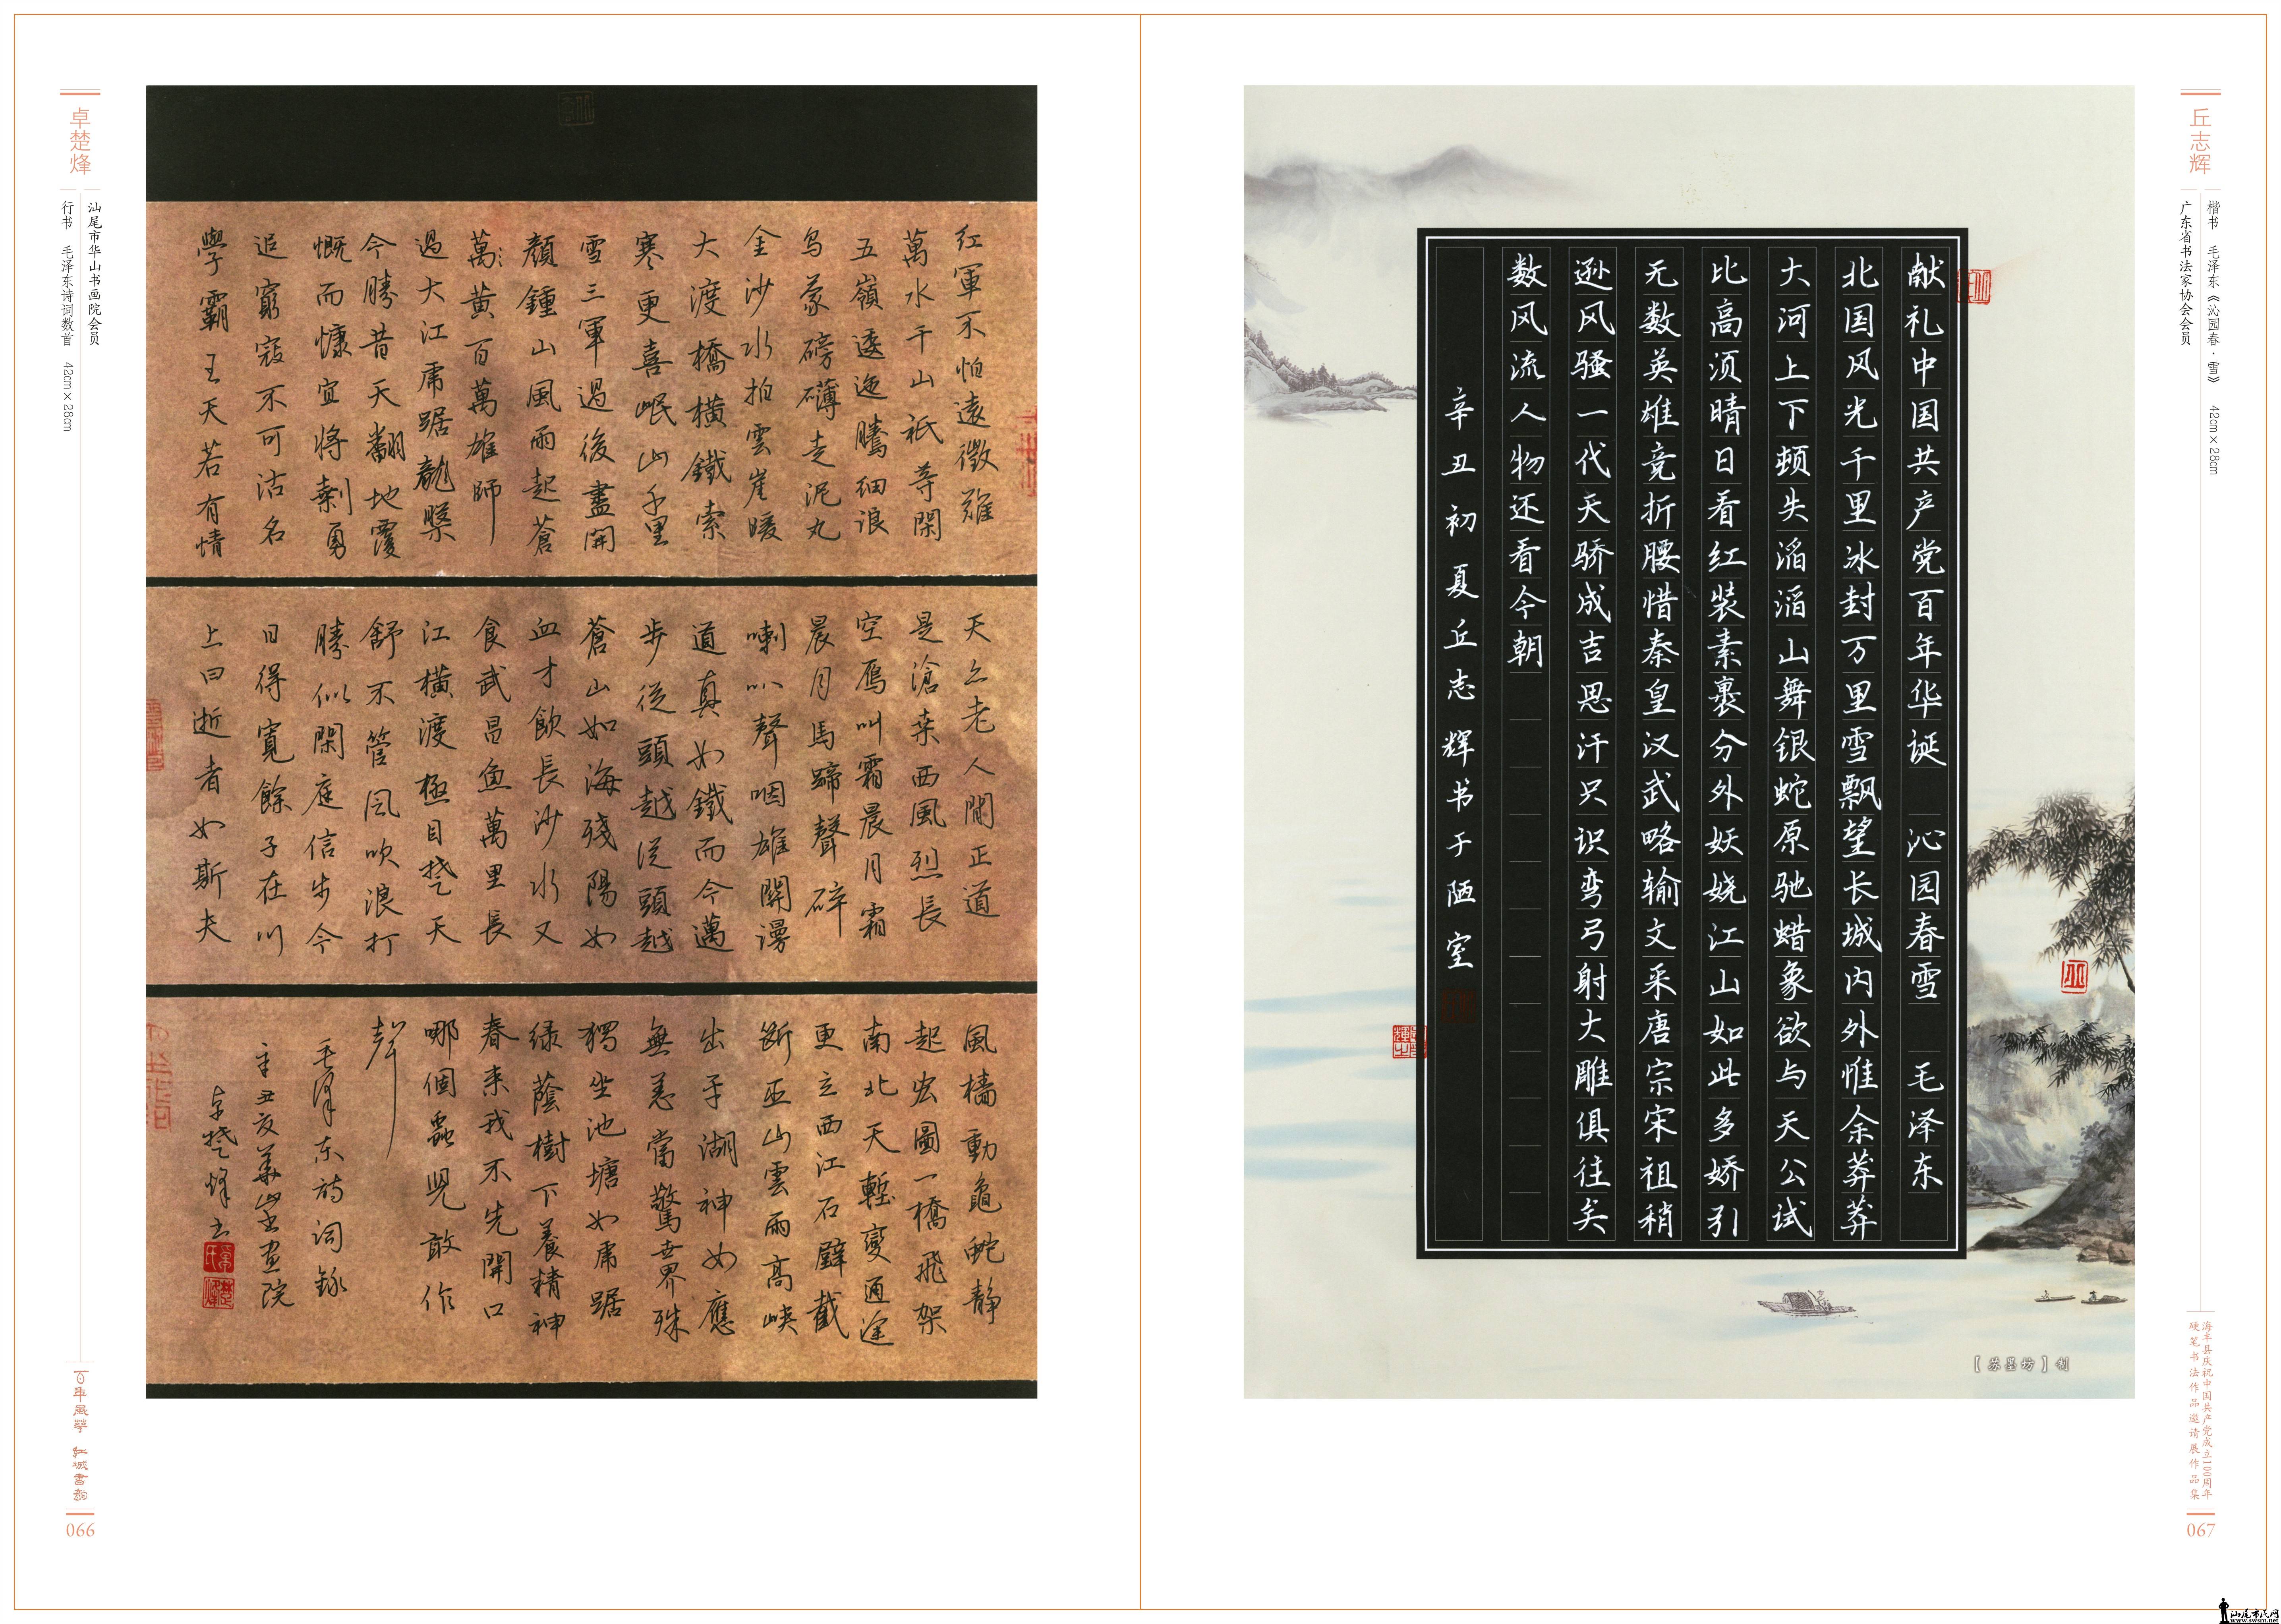 卓楚烽
汕尾市华山书画院会员
行书 毛泽东诗词数首 42cm×28cm
红軍不怕遠徵難
萬水千山衹等閑
五嶺逶迤騰细浪
乌蒙磅礴走泥丸
金沙水拍雲崖暖
大渡橋橫鐵索
寒更喜岷山千里
雪三軍過後盡開
顏鍾山風雨起蒼
萬黄百萬雄師
過大江虎踞龍槃
今勝昔天翻地覆
慨而慷宜將剩勇
追窮寇不可沽名
學霸王天若有情
天亦老人間正道
是滄桒西風烈長
空雁叫霜晨月霜
晨月馬蹄聲碎
喇叭聲咽雄關漫
道真如鐵而今邁
步從頭越從頭越
蒼山如海殘陽如
血才飲長沙水又
食武昌魚萬里長
江橫渡極目楚天
舒不管风吹浪打
勝似閑庭信步今
日得寬餘子在川
上曰逝者如斯夫
風檣動龜蛇静
起宏圖一橋飛架
南北天塹變通途
更立西江石壁截
斷巫山雲雨高峽
出平湖神女應
無恙當驚世界殊
獨坐池塘如虎踞
绿蔭樹下養精神
春来我不先開口
哪個蟲兒敢作
聲
毛泽东诗词錄
辛丑夏華山書畫院
卓楚烽书
百年風華 红城書韵
066
丘志辉
楷书 毛泽东《沁园春·雪》 42cm×28cm
广东省书法家协会会员
献礼中国共产党百年华诞 沁园春雪 毛泽东
北国风光千里冰封万里雪飘望长城内外惟余莽莽
大河上下顿失滔滔山舞银蛇原驰蜡象欲与天公试
比高须晴日看红装素裹分外妖娆江山如此多娇引
无数英雄竞折腰惜秦皇汉武略输文采唐宗宋祖稍
逊风骚一代天骄成吉思汗只识弯弓射大雕俱往矣
数风流人物还看今朝
辛丑初夏丘志辉书于陋室
【苏墨坊】制
海丰县庆祝中国共产党成立100周年
硬笔书法作品邀请展作品集
067
汕尾市民网
www.swsm.net